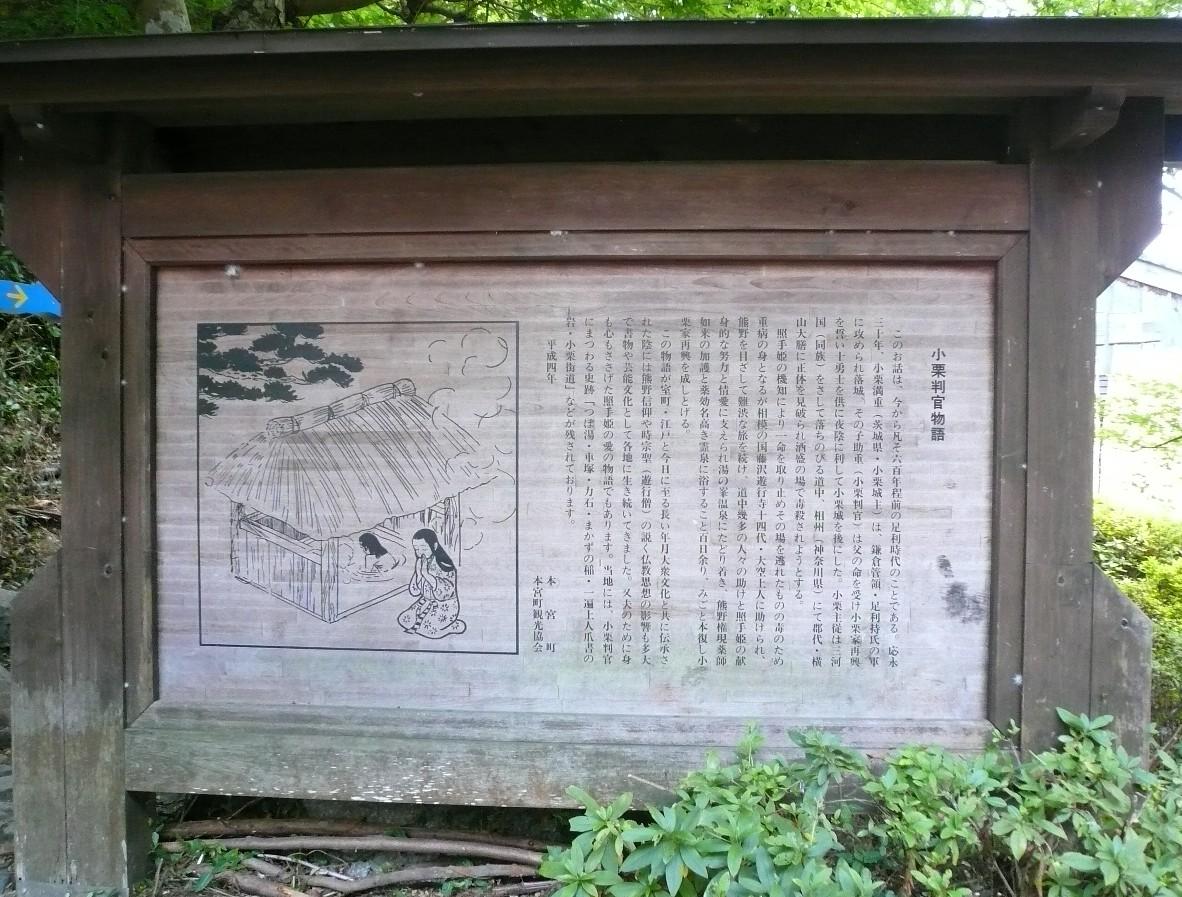 小栗判官物語
このお話は、今から凡そ六百年程前の足利時代のことである。応永
三十年、小栗満重（茨城県・小栗城主）は、鎌倉管領・足利持氏の軍
に攻められ落城。その子助重（小栗判官）は父の命を受け小栗家再興
を誓い十勇士を供に夜陰に利して小栗城を後にした。小栗主従は三河
国（同族）をさして落ちのびる道中、相州（神奈川県）にて郡代・横
山大膳に正体を見破られ酒盛の場で毒殺されようとする。
照手姫の機知により一命を取り止めその場を逃れたものの毒のため
重病の身となるが相模の国藤沢遊行寺十四代・大空上人に助けられ、
熊野を目ざして難渋な旅を続け、道中幾多の人々の助けと照手姫の献
身的な努力と情愛に支えられ湯の峯温泉にたどり着き、熊野権現薬師
如来の加護と薬効名高き霊泉に浴すること百日余り、みごと本復し小
栗家再興を成しとげる。
この物語が室町・江戸と今日に至る長い年月大衆文化と共に伝承さ
れた陰には熊野信仰や時宗聖（遊行僧）の説く仏教思想の影響も多大
で書物や芸能文化として各地に生き続いてきました。又夫のために身
も心もささげた照手姫の愛の物語でもあります。当地には、小栗判官
にまつわる史跡「つぼ湯・車塚・力石・まかずの稲・一遍上人爪書の
岩・小栗街道」などが残されております。
平成四年
本宮町
本宮町観光協会